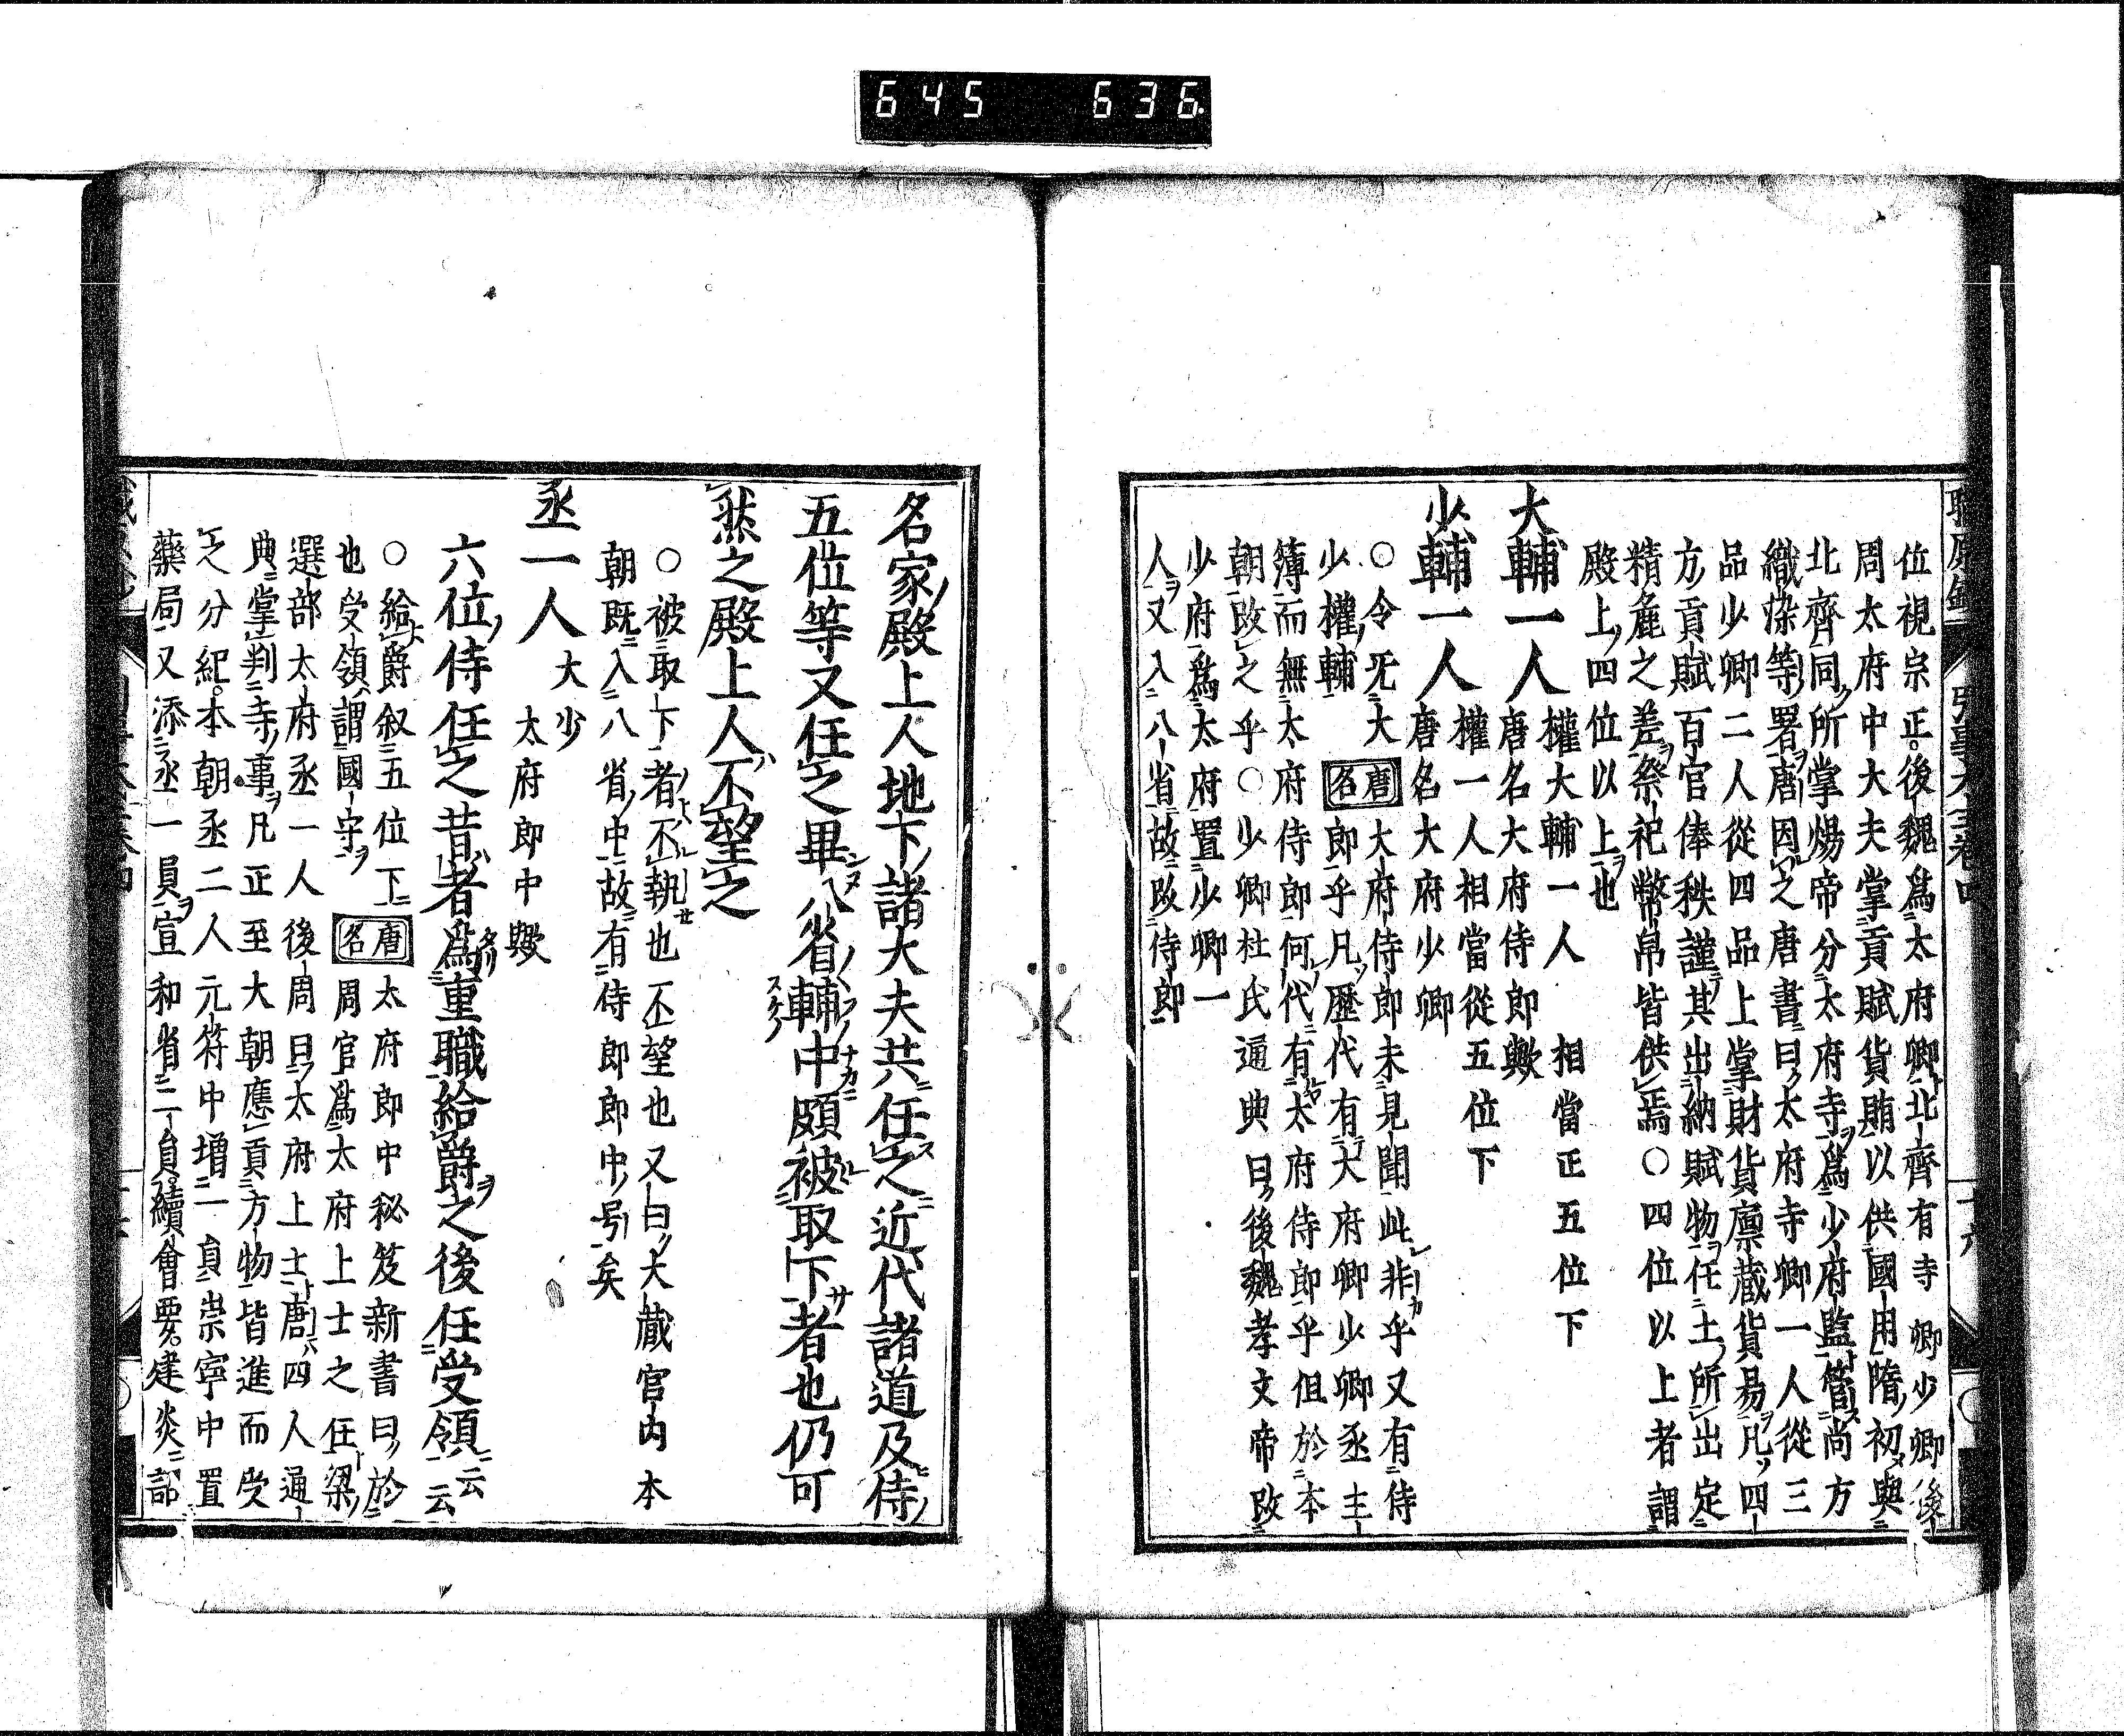 645 636
位視宗正。後魏爲太府卿北齊有寺卿少卿後
周太府中大夫掌貢賦貨賄以供國用隋初與
北齊同所掌煬帝分太府寺爲少府監管尚方
織染等署唐因之唐書曰太府寺卿一人從三
品少卿二人從四品上掌財貨廪藏貨易凡四
方貢賦百官俸秩謹其出納賦物任土所出定
精麁之差祭祀幣帛皆供焉○四位以上者謂
殿上四位以上也
大輔一人 權大輔一人 相當正五位下
唐名大府侍郎歟
少輔一人 權一人相當從五位下
唐名大府少卿
○令无大少權輔 唐名 大府侍郎未見聞此非乎又有侍
郎乎凡歴代有大府卿少卿丞主
簿而無太府侍郎何代有太府侍郎乎但於本
朝改之乎○少卿杜氏通典曰後魏孝文帝改
少府爲太府置少卿一
人又入八省故改侍郎
名家殿上人地下諸大夫共任之近代諸道及侍
五位等又任之畢八省輔中頗被取下者也仍可
然之殿上人不望之
○被取下者不執也不望也又曰大藏官内本
朝既入八省中故有侍郎郎中号矣
丞一人 大少 太府郎中歟
六位侍任之昔者爲重職給爵之後任受領云云
○給爵叙五位下也受領謂國守 唐名 太府郎中秘笈新書曰於
周官爲太府上士之任梁
選部太府丞一人後周曰太府上士唐四人通
典掌判寺事凡正至大朝應貢方物皆進而受
之分紀。本朝丞二人元符中增一員崇寧中置
藥局又添丞一員宣和省二員續會要。建炎詔